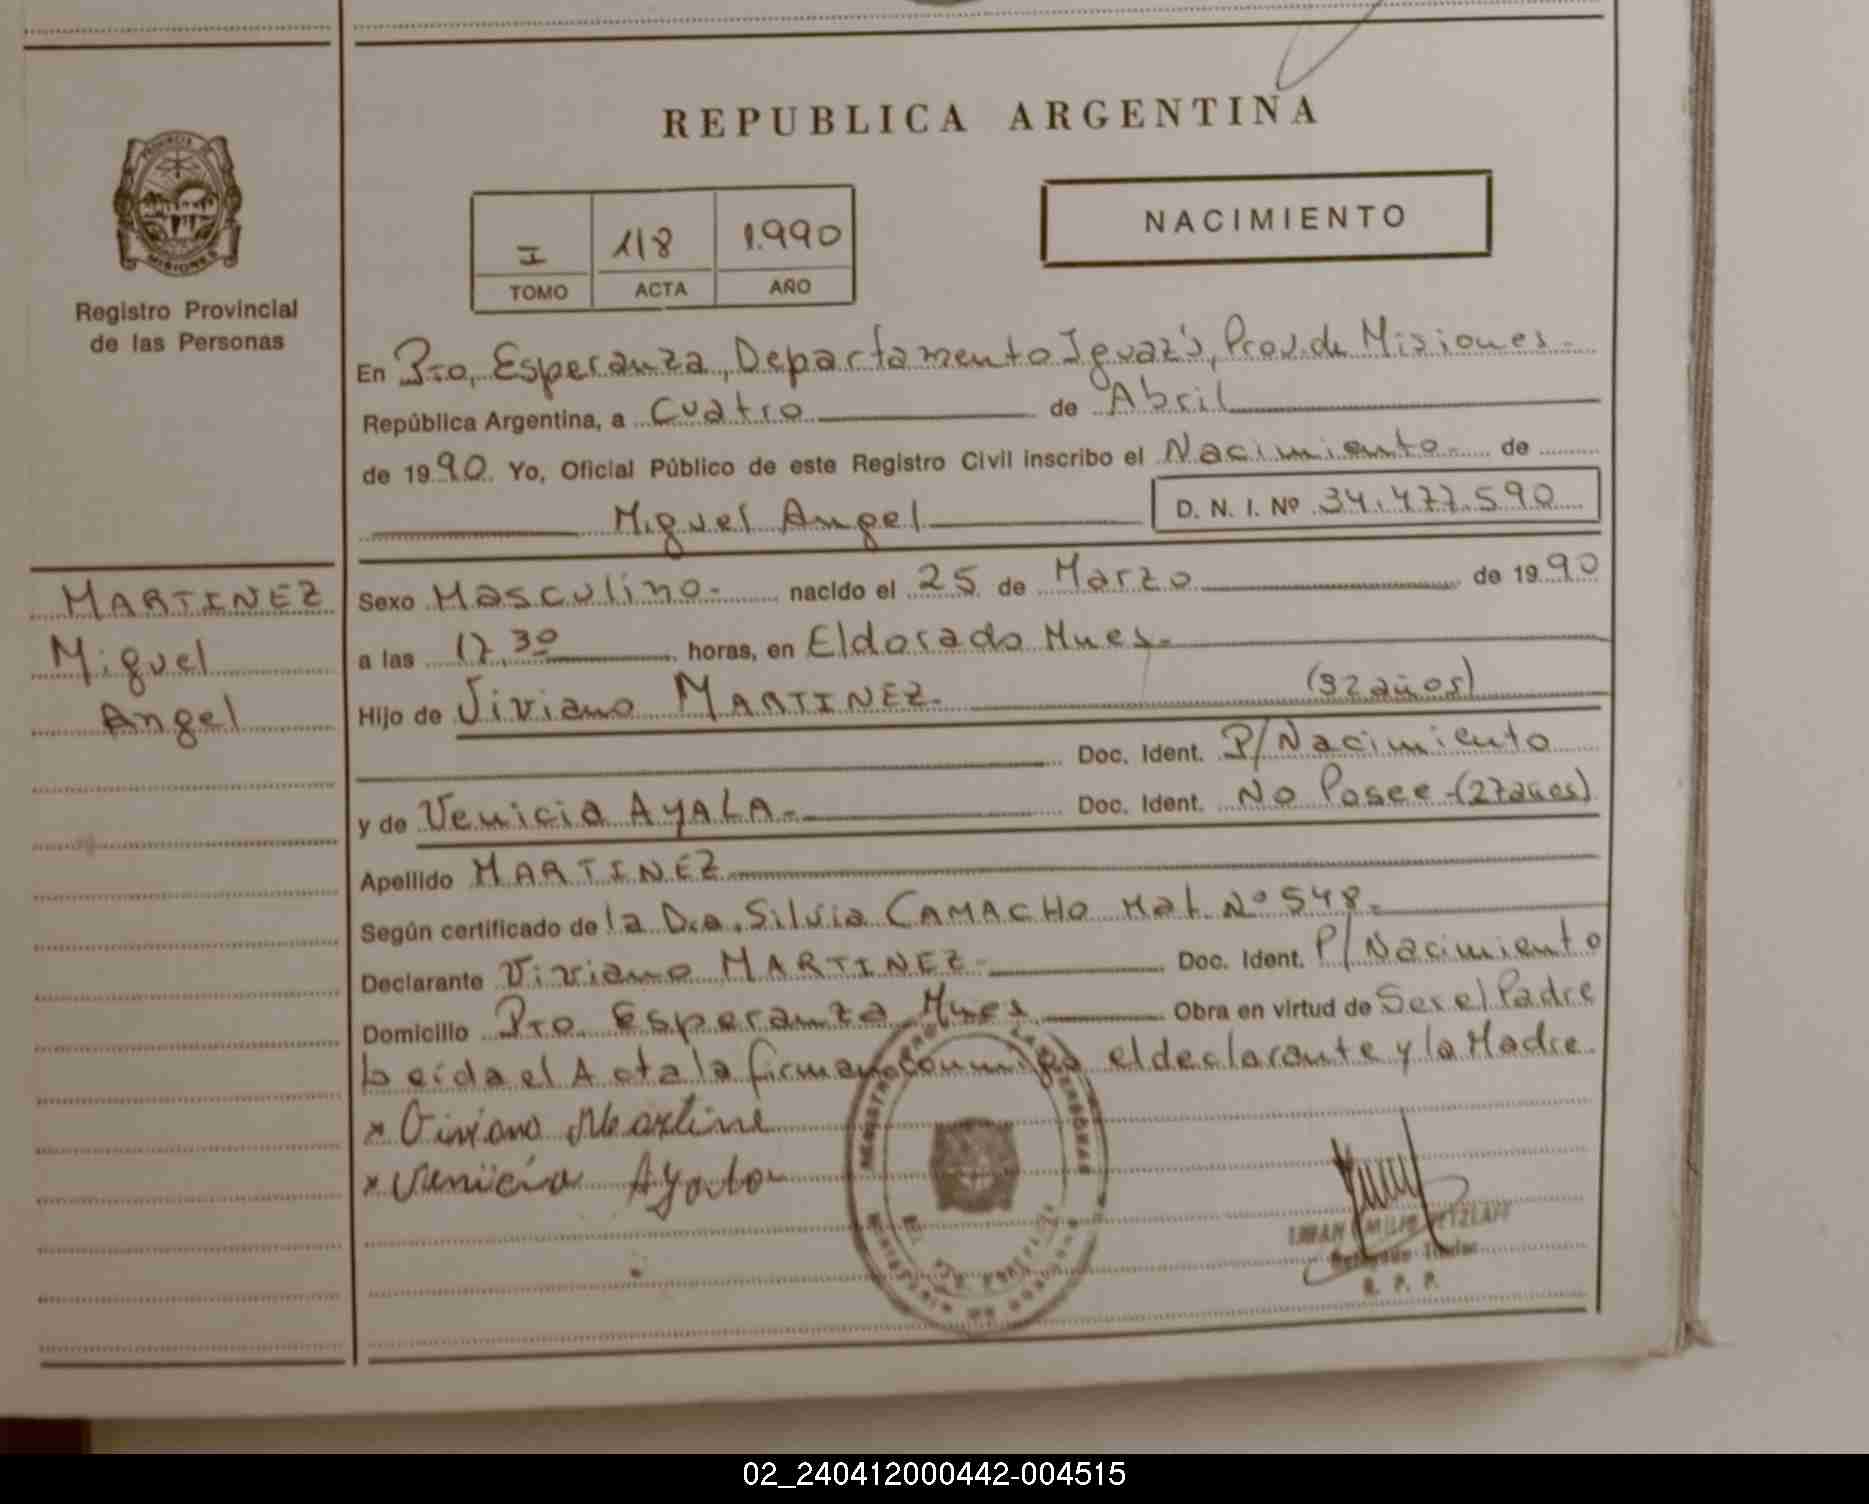 REPUBLICA ARGENTINA
PROVINCIA DE
MISIONES
Registro Provincial
de las Personas
I 118 1.990
TOMO ACTA AÑO
NACIMIENTO
En Pto, Esperanza, Departamento Iguazú, Prov. de Misiones.-
República Argentina, a Cuatro de Abril
de 1990. Yo, Oficial Público de este Registro Civil inscribo el Nacimiento.- de
Miguel Angel D. N. I. Nº 34.477.590
MARTINEZ
Miguel
Angel
Sexo Masculino.- nacido el 25 de Marzo de 1990
a las 17,30 horas, en Eldorado Mnes.-
Hijo de Viviano MARTINEZ.- (32 años)
Doc. Ident. P/Nacimiento
y de Venicia AYALA.- Doc. Ident. No Posee-(27años)
Apellido MARTINEZ
Según certificado de la Dra. Silvia CAMACHO Mat. Nº 548.-
Declarante Viviano MARTINEZ.- Doc. Ident. P/Nacimiento
Domicilio Pto. Esperanza Mnes. Obra en virtud de Ser el Padre
Leída el Acta la firman conmigo el declarante y la Madre.
x Viviano Martine
x Venicia Ayala
Titular
R. P. P.
02_240412000442-004515